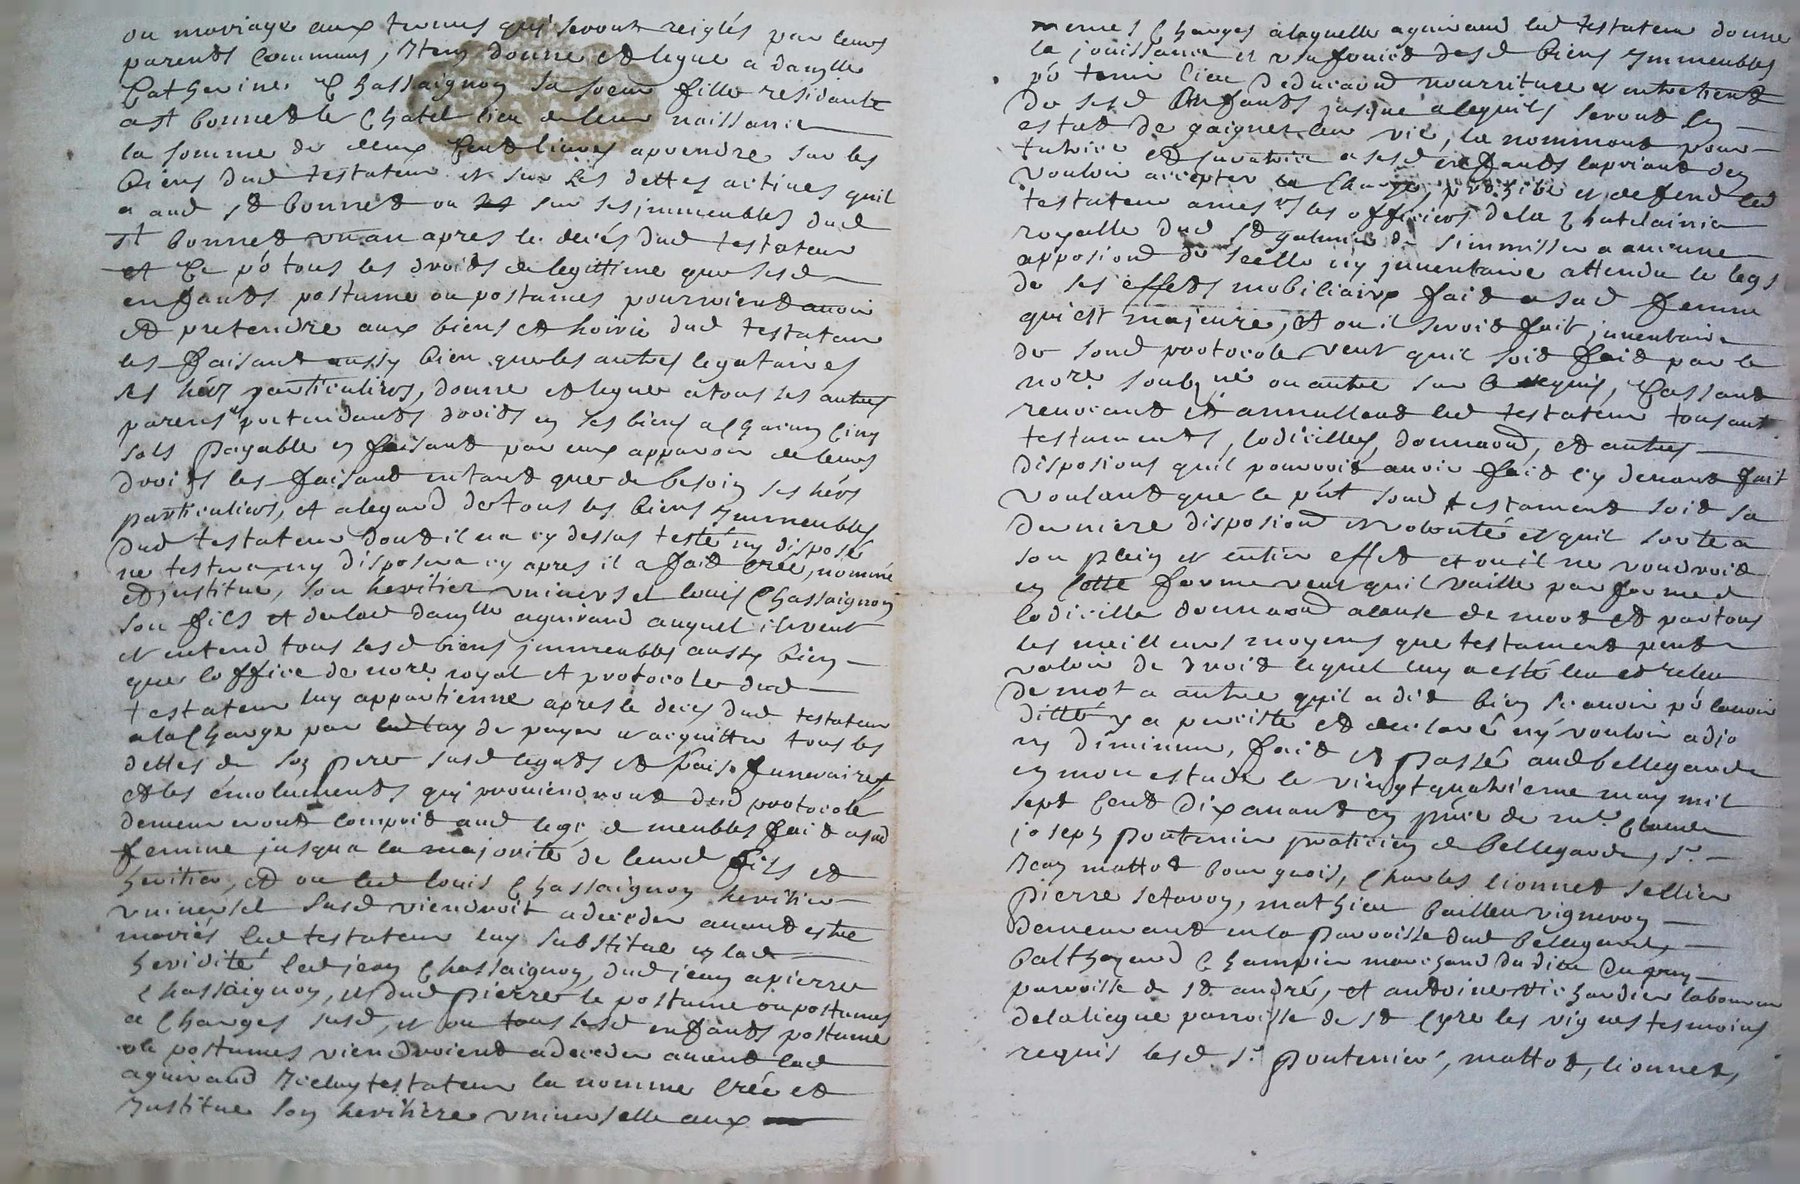 ou mariage aux termes qui seront reiglés par leurs
parents communs, Item donne et legue a dauzlle
Catherine Chassaignon sa soeur fille residante
a St bonnet le Chatel lieu de leur naissance
la somme de deux Cent livres aprendre sur les
biens dud testateur et sur les dettes actives quil
a aud St bonnet ou sur ses immeubles dud
St bonnet un an apres le decés dud testateur
et Ce po tous les droits de legitime que sesd
enfants postume ou postumes pourroient avoir
et pretendre aux biens et hoirie dud testateur
les faisant aussy bien que les autres legataires
ses hérs particuliers, donne et legue a tous ses autres
parens pretendants droits en ses biens a Chacun Cinq
sols payable en faisant par eux apparoir de leurs
droits les faisant en tant que de besoin ses hérs
particuliers, et alegard de tous les biens Immeubles
dud testateur dont il na cy dessus testé ny disposé
ne testera ny disposera cy apres il a fait creé, nommé
et institué, son heritier universel louis Chassaignon
son fils et de lad dauzlle aguiraud auquel il veut
et entend tous sesd biens immeubles aussy bien
que loffice de nore royal et protocole dud
testateur luy appartienne apres le deces dud testateur
a la Charge par luy de payer et acquitter tous les
dettes de son pere susd legats et frais funeraires
et les émoluments qui proviendront dud protocole
demeureront compris aud legs de meubles fait a sad
femme jusqua la majorite de leurd fils et
heritier, et ou led louis Chassaignon heritier
universel susd viendroit a deceder avant estre
mariés led testateur luy substitue en lad
heridité led jean Chassaignon, dud jean a pierre
Chassaignon, et dud pierre le postume ou postumes
a Charges susd, et ou tous lesd enfants postume
ou postumes viendroient a deceder avant lad
aguiraud Iceluy testateur la nomme creé et
Institue son heritiere universelle aux
memes Charges a laquelle aguiraud led testateur donne
la jouissance et usufruict desd biens Immeubles
po tenir lieu deducaond nourriture et entretient
de sesd Enfants jusque a lequils seront en
estat de gaigner leur vie, la nommant pour
tutrice et curatrice a sesd enfants la priant den
vouloir accepter la Charge, prohibe et defend led
testateur a mesrs les officiers de la Chatelainie
royalle dud St galmier de simmisser a aucune
apposiond de scelle ny inventaire attendu le legs
de ses effets mobiliaire fait a sad femme
qui est majeure, et ou il seroit fait inventaire
de sond protocole veut quil soit fait par le
nore soubzné ou autre sur Ce requis, Cassant
revocant et annullant led testateur tous aut
testaments, Codicilles, donnaond, et autres
disposions quil pourroit avoir fait cy devant
voulant que le pnt sond testament soit sa
derniere disposiond et volonté et quil sorte a
son plein et entier effet et ou il ne vaudroit
en Cette forme veut quil vaille par forme d
Codicille donnaond a cause de mort et par tous
les meilleurs moyens que testament peut
valoir de droit lequel luy a esté leu et releu
de mot a autre quil a dit bien scavoir po lavoir
ditté y a percisté et declaré ny vouloir adjo
ny diminuer, fait et passé aud bellegarde
en mon estude le vingt quatrieme may mil
sept Cent dix avant en pnce de mr Claude
joseph pontenier praticien de bellegarde, sr
Jean mattot bourgeois, Charles lionnet sellier
pierre setavon, mathieu bailleu vigneron
demeurant en la parroisse dud belegarde,
balthazard Champier marchand du dieu du puy
parroisse de St andré, et antoine richardier laboureur
de la liegue parroisse de St Cyre les vignes tesmoins
requis lesd sr pontenier, mattot, lionnet,